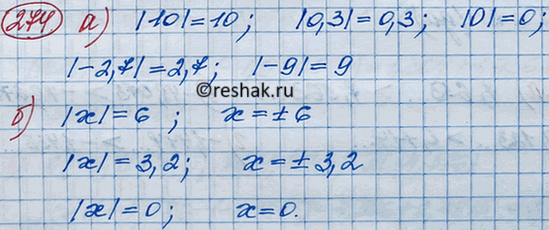 274 а) |-10|=10; |0,3|=0,3; |0|=0;
|-2,7|=2,7; |-9|=9
©reshak.ru
б) |x|=6; x=±6
|x|=3,2; x=±3,2
|x|=0; x=0.